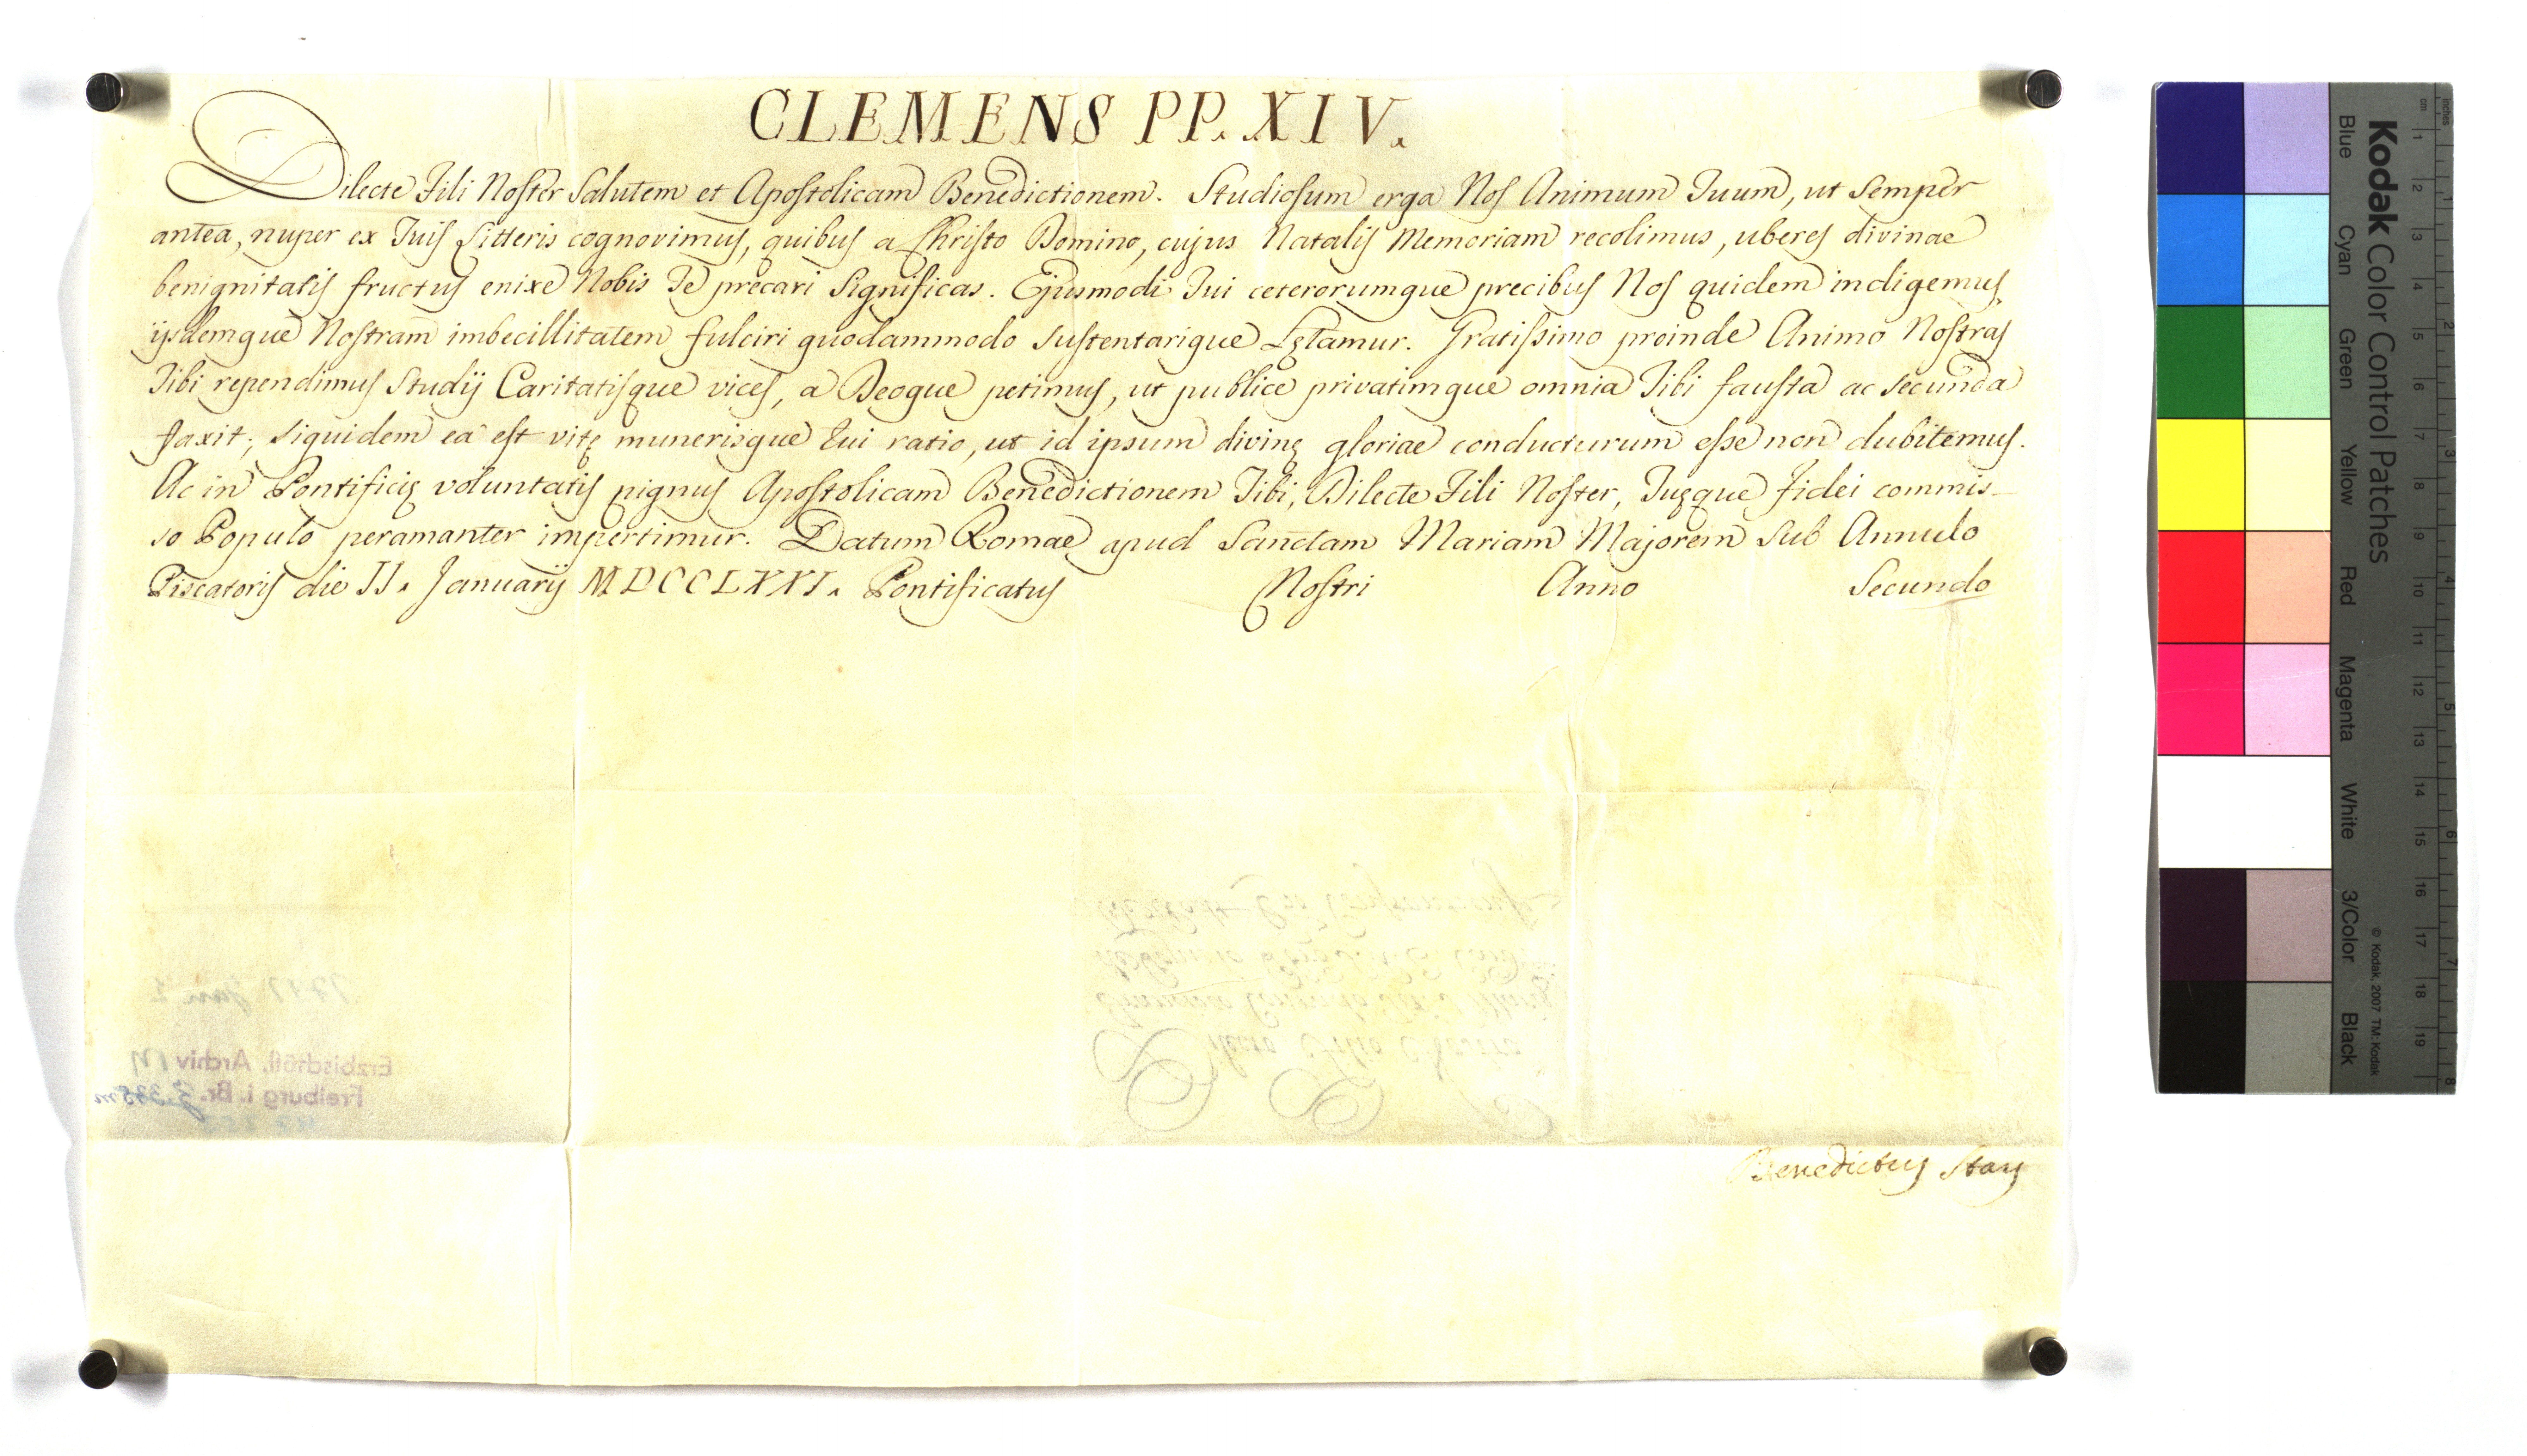 CLEMENS PP. XIV.
Dilecte Fili Noster Salutem et Apostolicam Benedictionem. Studiosum erga Nos Animum Tuum, ut semper
antea, nuper ex Tuis Litteris cognovimus, quibus a Christo Domino, cujus Natalis Memoriam recolimus, uberes divinae
benignitatis fructus enixe Nobis Te precari significas. Ejusmodi Tui ceterorumque precibus Nos quidem indigemus,
ijsdemque Nostram imbecillitatem fulciri quodammodo sustentarique Lętamur. Gratissimo proinde Animo Nostras
Tibi rependimus Studij Caritatisque vices, a Deoque petimus, ut publice privatimque omnia Tibi fausta ac secunda
faxit; siquidem ea est vitę munerisque tui ratio, ut id ipsum divinę gloriae conducturum esse non dubitemus.
Ac in Pontificię voluntatis pignus Apostolicam Benedictionem Tibi, Dilecte Fili Noster, Tuęque fidei commis-
so Populo peramanter impertimur. Datum Romae apud Sanctam Mariam Majorem sub Annulo
Piscatoris die II. Januarij MDCCLXXI. Pontificatus Nostri Anno Secundo
Dilecto Filio Nostro
1771 Jan 2
Erzbischöfl. Archiv
Freiburg i. Br.
Benedictus Stay
Kodak Color Control Patches
Blue Cyan Green Yellow Red Magenta White 3/Color Black
© Kodak, 2007 TM: Kodak
cm 1 2 3 4 5 6 7 8 9 10 11 12 13 14 15 16 17 18 19
inches 1 2 3 4 5 6 7 8